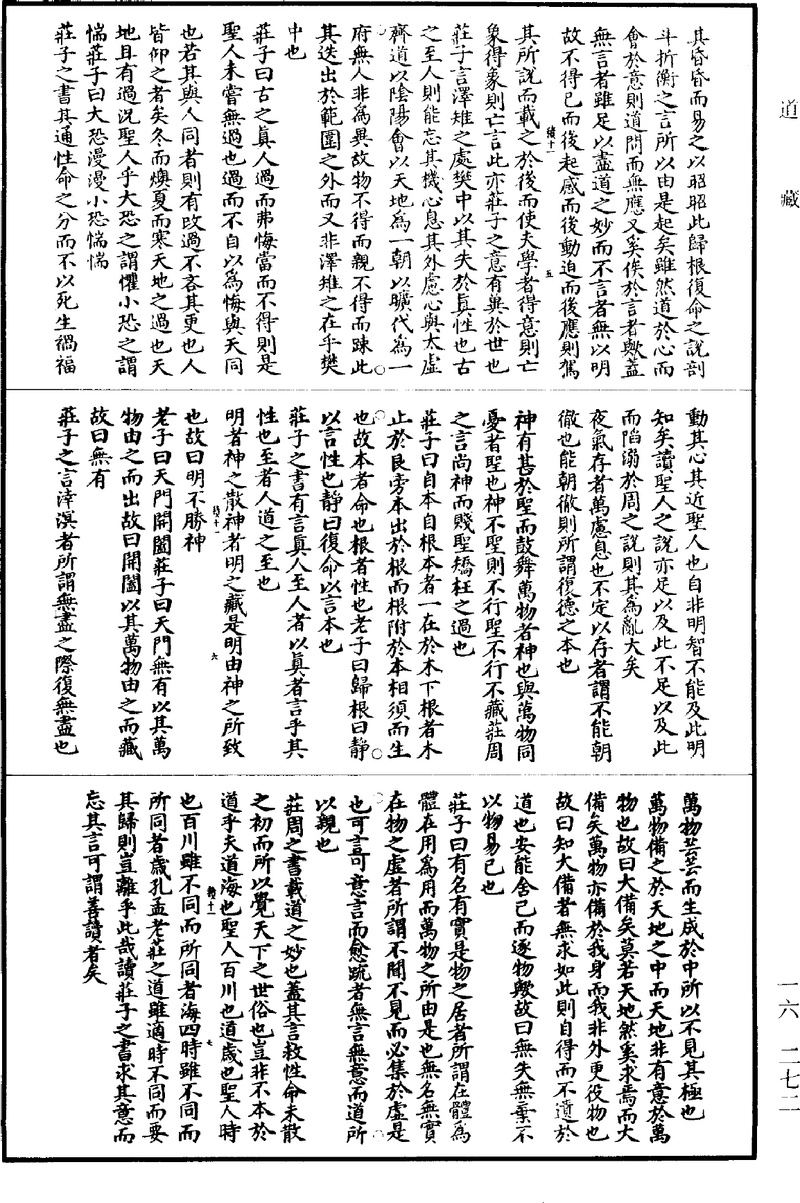 道藏
其昏昏而易之以昭昭此歸根復命之說剖
斗折衡之言所以由是起矣雖然道於心而
會於意則道問而無應又奚俟於言者歟蓋
無言者雖足以盡道之妙而不言者無以明
故不得已而後起感而後動迫而後應則駕
其所說而載之於後而使夫學者得意則亡
象得象則亡言此亦莊子之意有異於世也
莊子言澤雉之處樊中以其失於真性也古
之至人則能忘其機心息其外慮心與太虛
齊道以陰陽會以天地為一朝以曠代為一
府無人非為異故物不得而親不得而踈此
其迭出於範圍之外而又非澤雉之在乎樊
中也
莊子曰古之真人過而弗悔當而不得則是
聖人未嘗無過也過而不自以為悔與天同
也若其與人同者則有改過不吝其更也人
皆仰之者矣冬而燠夏而寒天地之過也天
地且有過況聖人乎大恐之謂懼小恐之謂
惴莊子曰大恐漫漫小恐惴惴
莊子之書其通性命之分而不以死生禍福
動其心其近聖人也自非明智不能及此明
知矣讀聖人之說亦足以及此不足以及此
而陷溺於周之說則其為亂大矣
夜氣存者萬慮息也不定以存者謂不能朝
徹也能朝徹則所謂復德之本也
神有甚於聖而鼓舞萬物者神也與萬物同
憂者聖也神不聖則不行聖不行不藏莊周
之言尚神而賤聖矯枉之過也
莊子曰自本自根本者一在於木下根者木
止於艮旁本出於根而根附於本相須而生
也故本者命也根者性也老子曰歸根曰靜
以言性也靜曰復命以言本也
莊子之書有言真人至人者以真者言乎其
性也至者人道之至也
明者神之散神者明之藏是明由神之所致
也故曰明不勝神
老子曰天門開闔莊子曰天門無有以其萬
物由之而出故曰開闔以其萬物由之而藏
故曰無有
莊子之言滓溟者所謂無盡之際復無盡也
萬物芸芸而生成於中所以不見其極也
萬物備之於天地之中而天地非有意於萬
物也故曰大備矣莫若天地然奚求焉而大
備矣萬物亦備於我身而我非外更役物也
故曰知大備者無求如此則自得而不遺於
道也安能舍己而逐物歟故曰無失無棄不
以物易己也
莊子曰有名有實是物之居者所謂在體為
體在用為用而萬物之所由是也無名無實
在物之虛者所謂不聞不見而必集於虛是
也可言可意言而愈踈者無言無意而道所
以親也
莊周之書載道之妙也蓋其言救性命未散
之初而所以覺天下之世俗也豈非不本於
道乎夫道海也聖人百川也道歲也聖人時
也百川雖不同而所同者海四時雖不同而
所同者歲孔孟老莊之道雖適時不同而要
其歸則豈離乎此哉讀莊子之書求其意而
忘其言可謂善讀者矣
一六 二七二